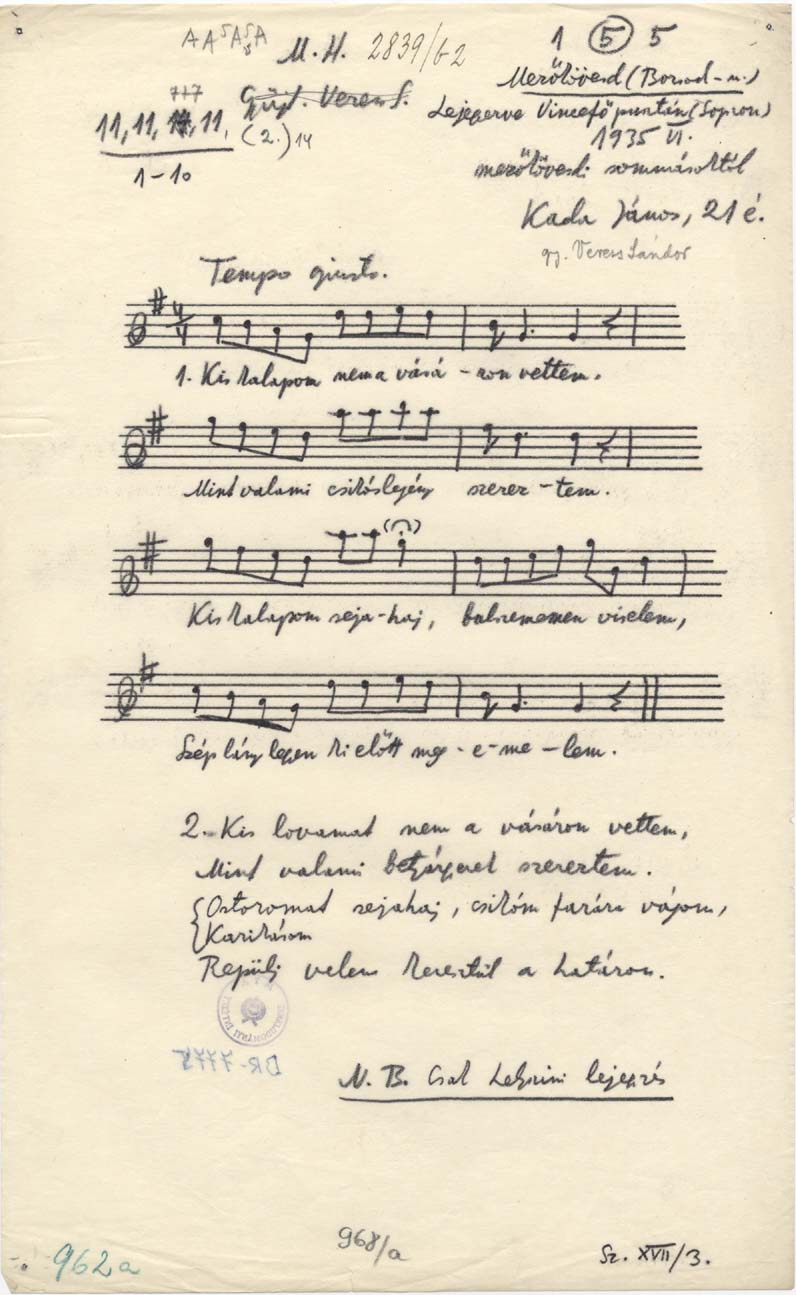 A A⁵ A⁵ A
M. H. 2839/b2
1 ⑤ 5
Gyűjt. Veress S.
Mezőkövesd (Borsod-m.)
7+7
11, 11, 14, 11,
(2.) 14
1-10
Lejegyezve Vincefő pusztán (Sopron)
1935 VI.
mezőkövesdi sommásoktól
Kada János, 21 é.
gy. Veress Sándor
Tempo giusto.
1. Kis kalapom nem a vásá - ron vettem.
Mint valami csikóslegény szerez - tem.
Kis kalapom seja-haj, balszememen viselem,
Szép lány legen ki előtt meg - e - me - lem.
2. Kis lovamat nem a vásáron vettem,
Mint valami betyárgyerek szereztem.
Ostoromat sejahaj, csikóm farára vágom,
Karikásom
Repülj velem keresztül a határon.
BR-7777
N. B. Csak helyszíni lejegyzés
968/a
962a
Sz. XVII/3.